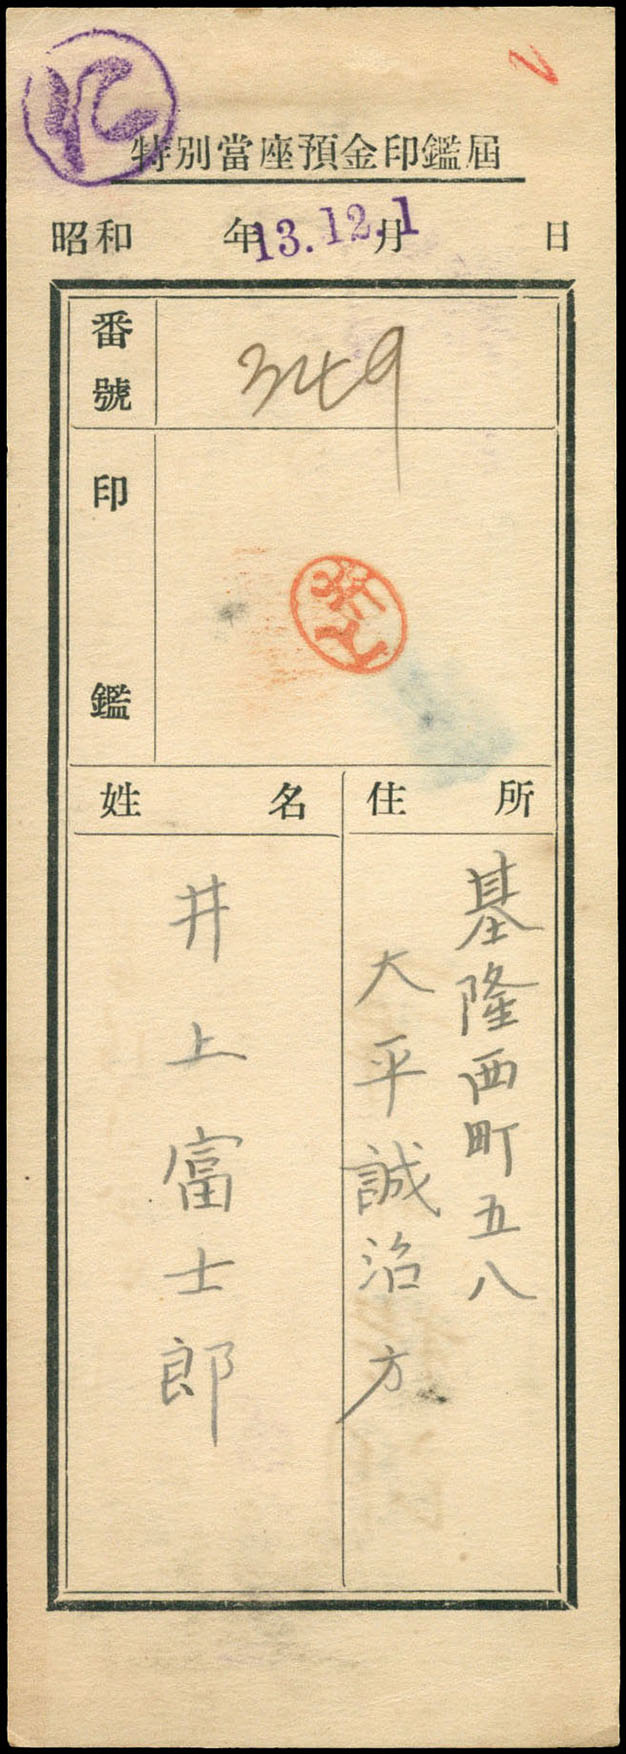 特別當座預金印鑑屆
昭和 年 月 日
13.12.1
番號
349
印鑑
姓名
住所
基隆西町五八
大平誠治方
井上富士郎